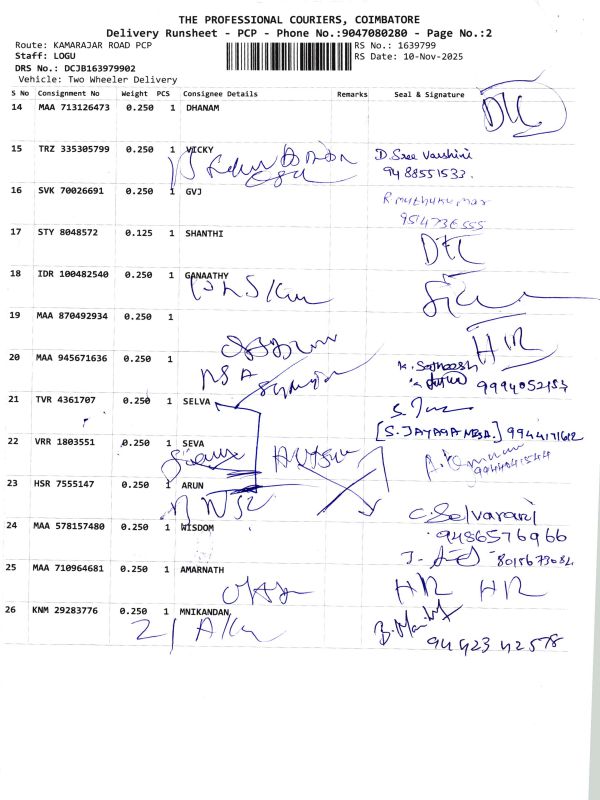 THE PROFESSIONAL COURIERS, COIMBATORE
Delivery Runsheet - PCP - Phone No.:9047080280 - Page No.:2
Route: KAMARAJAR ROAD PCP RS No.: 1639799
Staff: LOGU RS Date: 10-Nov-2025
DRS No.: DCJB163979902
Vehicle: Two Wheeler Delivery
S No Consignment No Weight PCS Consignee Details Remarks Seal & Signature
14 MAA 713126473 0.250 1 DHANAM
15 TRZ 335305799 0.250 1 VICKY D. Sree Varshini
9488551533.
16 SVK 70026691 0.250 1 GVJ R muthukumar
9514736555
17 STY 8048572 0.125 1 SHANTHI
18 IDR 100482540 0.250 1 GANAATHY
19 MAA 870492934 0.250 1
HR
20 MAA 945671636 0.250 1 K. Satheesh
9994052153
21 TVR 4361707 0.250 1 SELVA
22 VRR 1803551 0.250 1 SEVA
23 HSR 7555147 0.250 1 ARUN
24 MAA 578157480 0.250 1 WISDOM C. Selvarani
9486576966
8015673084
25 MAA 710964681 0.250 1 AMARNATH HR HR
26 KNM 29283776 0.250 1 MNIKANDAN
94423 42578